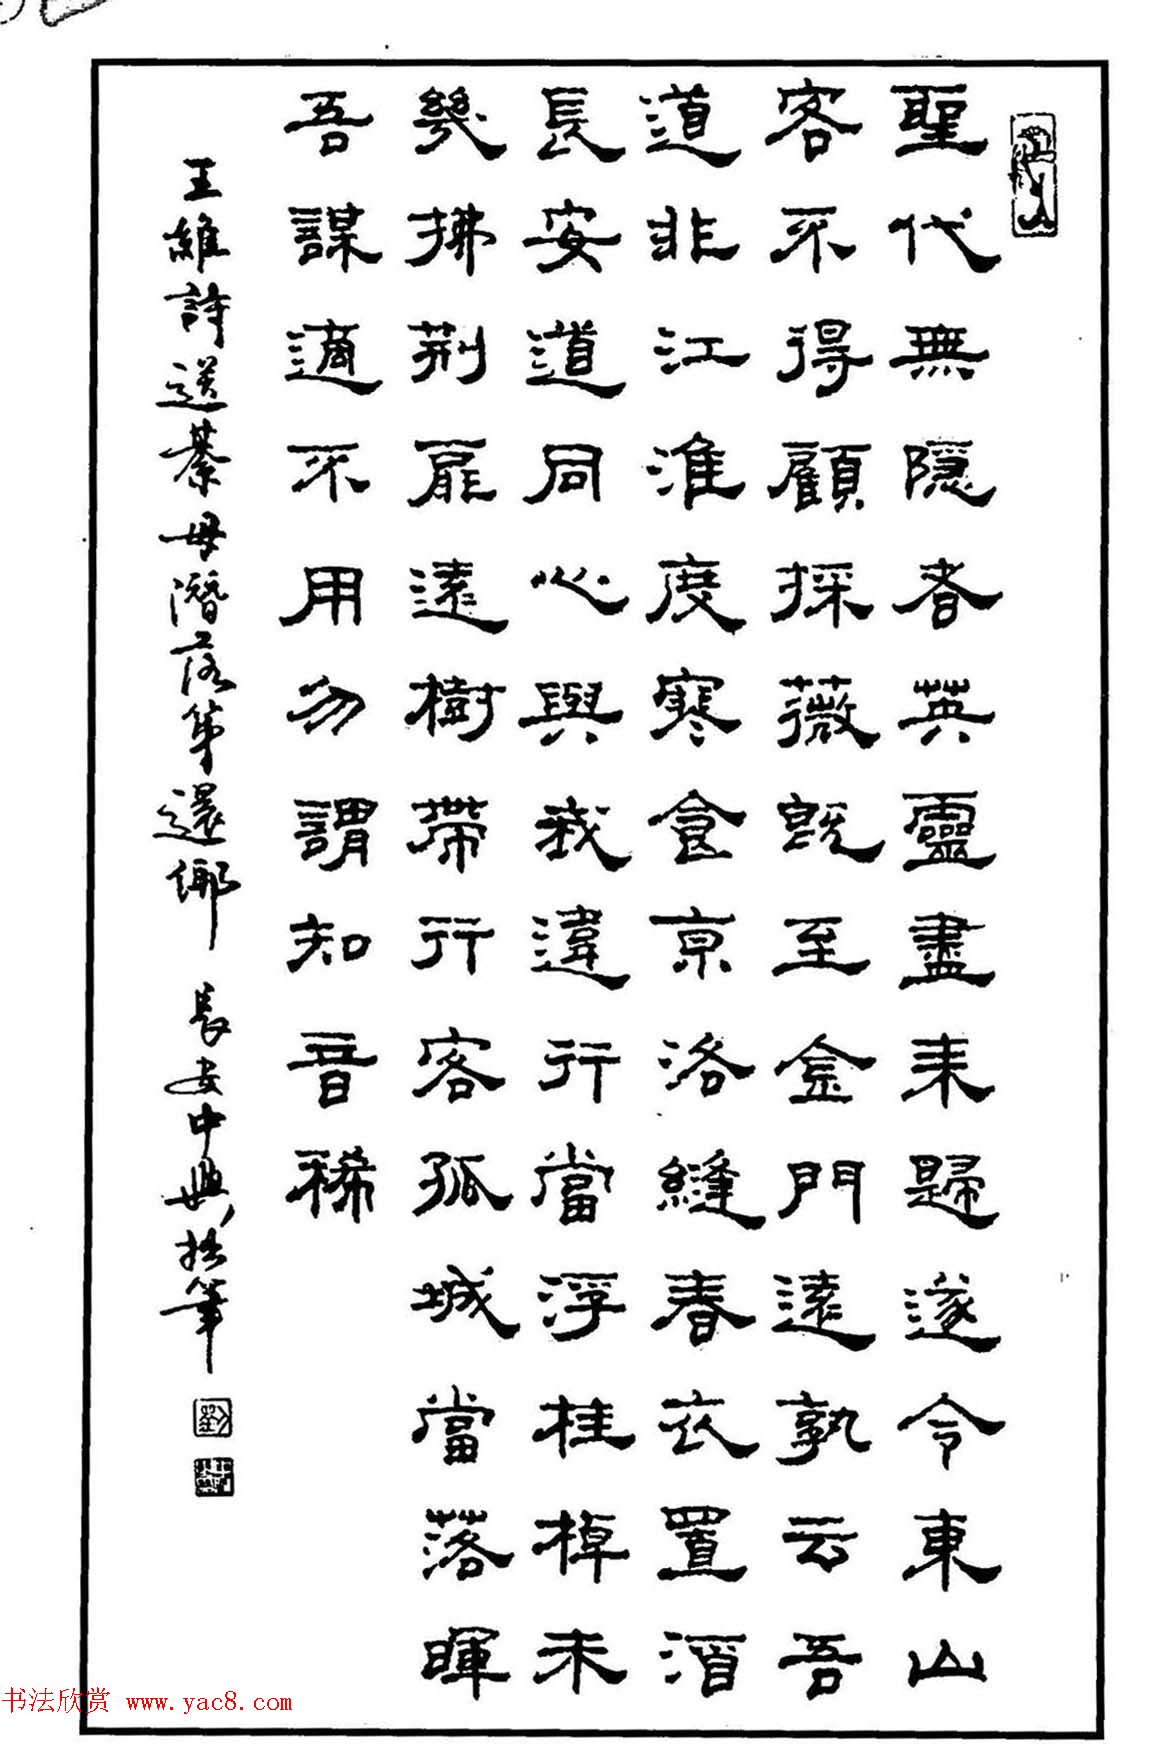 聖代無隱者英靈盡来歸遂令東山
客不得顧採薇既至金門遠孰云吾
道非江淮度寒食京洛縫春衣置酒
長安道同心與我違行當浮桂棹未
幾拂荆扉遠樹帶行客孤城當落暉
吾謀適不用勿謂知音稀
王維詩送綦母潛落第還鄉 長安中興拙筆
劉
书法欣赏 www.yac8.com